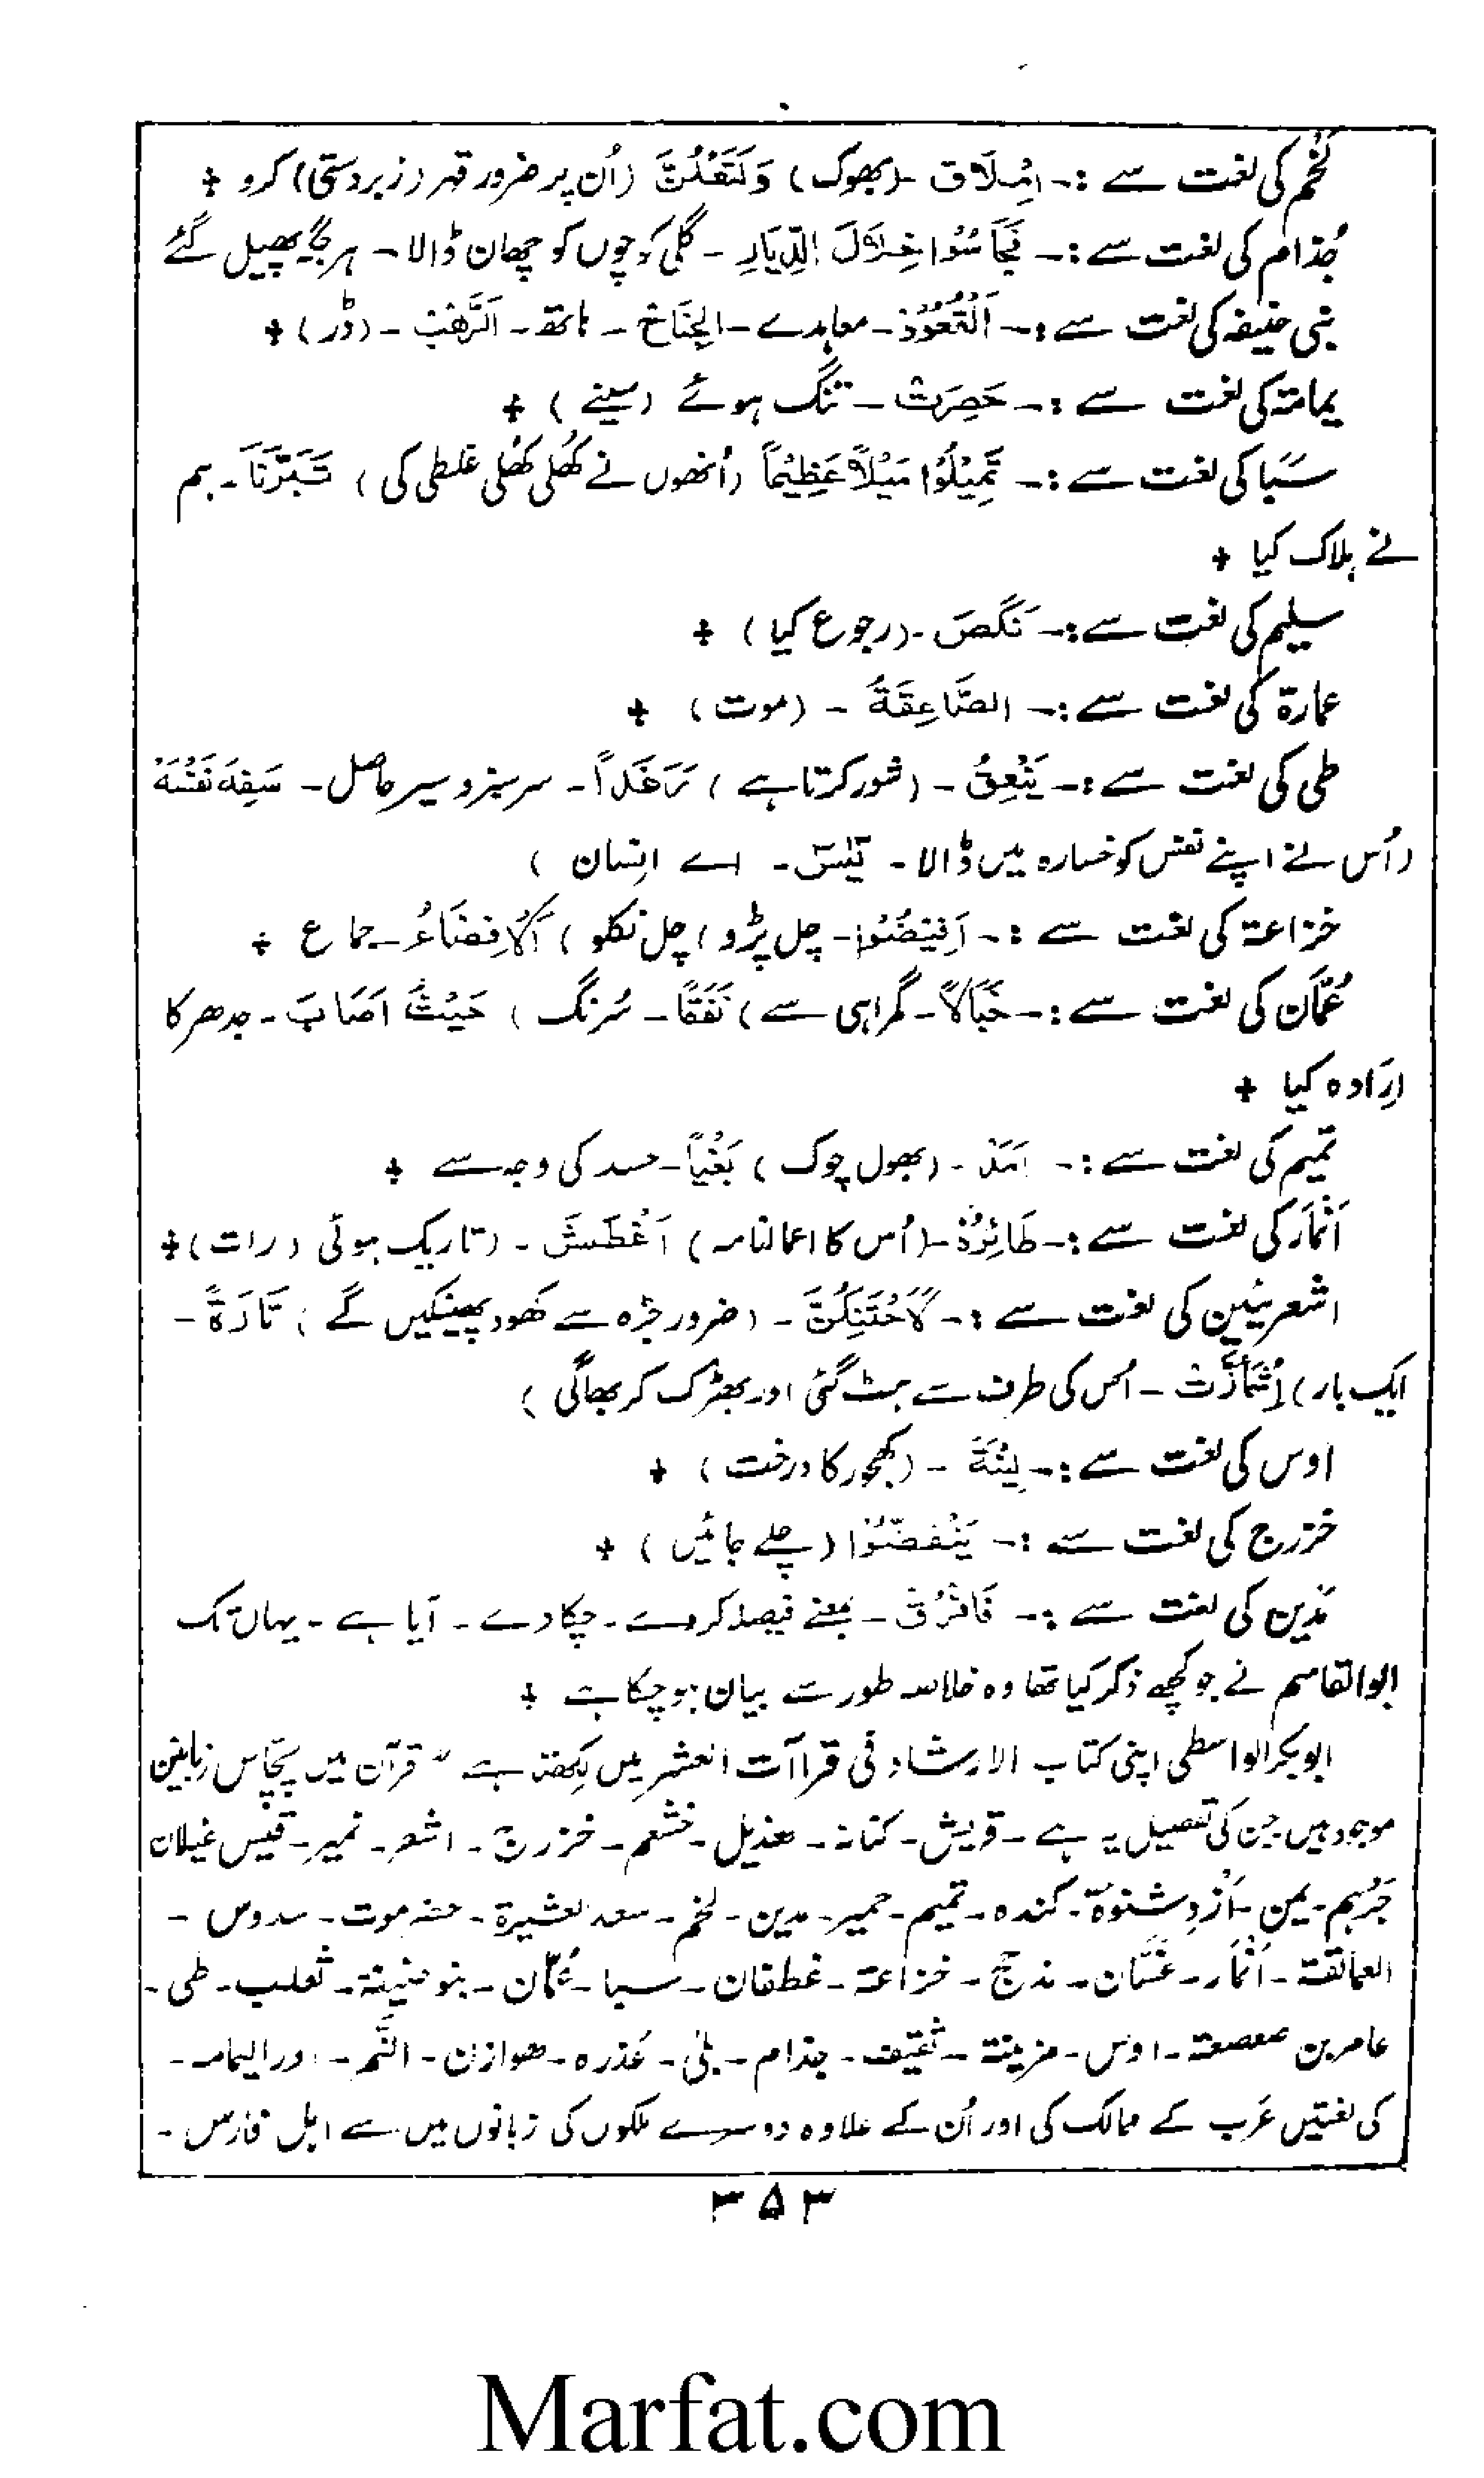 لَخْم کی لغت سے :۔ اِمْلَاق ۔ (بھوک) وَلَتَعْلُنَّ (اُن پر ضرور قہر (زبردستی) کرو +
جُذام کی لغت سے :۔ فَجَاسُوا خِلَالَ الدِّیَارِ ۔ گلی کوچوں کو چھان ڈالا ۔ ہر جگہ پھیل گئے
بنی حنیفہ کی لغت سے :۔ اَلْعُقُوْدُ ۔ معاہدے ۔ الجَنَاحُ ۔ ہاتھ ۔ اَلرَّھْبُ ۔ (ڈر) +
یمامۃ کی لغت سے :۔ حَصِرَتْ ۔ تنگ ہوئے (سینے) +
سَبَا کی لغت سے :۔ تَمِیْلُوْا مَیْلاً عَظِیْماً (اُنھوں نے کھُلی کھُلی غلطی کی) تَبَّرْنَا ۔ ہم
نے ہلاک کیا +
سلیم کی لغت سے :۔ نَکَصَ ۔ (رجوع کیا) +
عمارۃ کی لغت سے :۔ الصَّاعِقَةُ ۔ (موت) +
طی کی لغت سے :۔ یَنْعِقُ ۔ (شور کرتا ہے) رَغَداً ۔ سرسبز و سیر حاصل ۔ سَفِهَ نَفْسَهُ
(اُس نے اپنے نفس کو خسارہ میں ڈالا ۔ یٰسٓ ۔ اے انسان)
خزاعۃ کی لغت سے :۔ اَفِیْضُوْا ۔ چل پڑو (چل نکلو) اَلْاِفْضَاءُ ۔ جماع +
عُمَّان کی لغت سے :۔ خَبَالاً ۔ گمراہی سے) نَفَقًا ۔ سُرنگ) حَیْثُ اَصَابَ ۔ جدھر کا
اِرَادہ کیا +
تمیم کی لغت سے :۔ اَمَدٌ ۔ (بھول چوک) بَغْیًا ۔ حسد کی وجہ سے +
اَنْمَار کی لغت سے :۔ طَائِرَہُ ۔ (اُس کا اعمالنامہ) اَغْطَشَ ۔ (تاریک ہوئی (رات) +
اشعریّین کی لغت سے :۔ لَاَحْتَنِکَنَّ ۔ (ضرور جڑہ سے کھود پھینکیں گے) تَارَةً ۔
ایک بار) اِشْمَأَزَّتْ ۔ اس کی طرف سے ہٹ گئی اور بھڑک کر بھاگی)
اوس کی لغت سے :۔ لِیْنَة ۔ (کھجور کا درخت) +
خزرج کی لغت سے :۔ یَنْفَضُّوْا (چلے جائیں) +
مَدین کی لغت سے :۔ فَافْرُقْ ۔ بمعنے فیصلہ کر دے ۔ چکا دے ۔ آیا ہے ۔ یہاں تک
ابوالقاسم نے جو کچھ ذکر کیا تھا وہ خلاصہ طور سے بیان ہو چکا ہے +
ابوبکر الواسطی اپنی کتاب الارشاد فی قراآت العشر میں لکھتا ہے " قرآن میں پچّاس زبانیں
موجود ہیں جن کی تفصیل یہ ہے ۔ قریش ۔ کنانہ ۔ ھذیل ۔ خشعم ۔ خزرج ۔ اشعر ۔ نمیر ۔ قیس غیلان
جُرہم ۔ یمن ۔ اَزْدِ شنوۃ ۔ کندہ ۔ تمیم ۔ حمیر ۔ مدین ۔ لخم ۔ سعد العشیرۃ ۔ حضرموت ۔ سدوس ۔
العمالقۃ ۔ اَنْمَار ۔ غَسَّان ۔ مذحج ۔ خزاعۃ ۔ غطفان ۔ سبا ۔ عُمّان ۔ بنو حنیفۃ ۔ ثعلب ۔ طی ۔
عامر بن صعصعۃ ۔ اوس ۔ مزینۃ ۔ ثقیف ۔ جذام ۔ بلی ۔ عُذرہ ۔ ھوازن ۔ النَّمر ۔ اور الیمامہ ۔
کی لغتیں عَرب کے ممالک کی اور اُن کے علاوہ دوسرے ملکوں کی زبانوں میں سے اہل فارس ۔
۳۵۳
Marfat.com